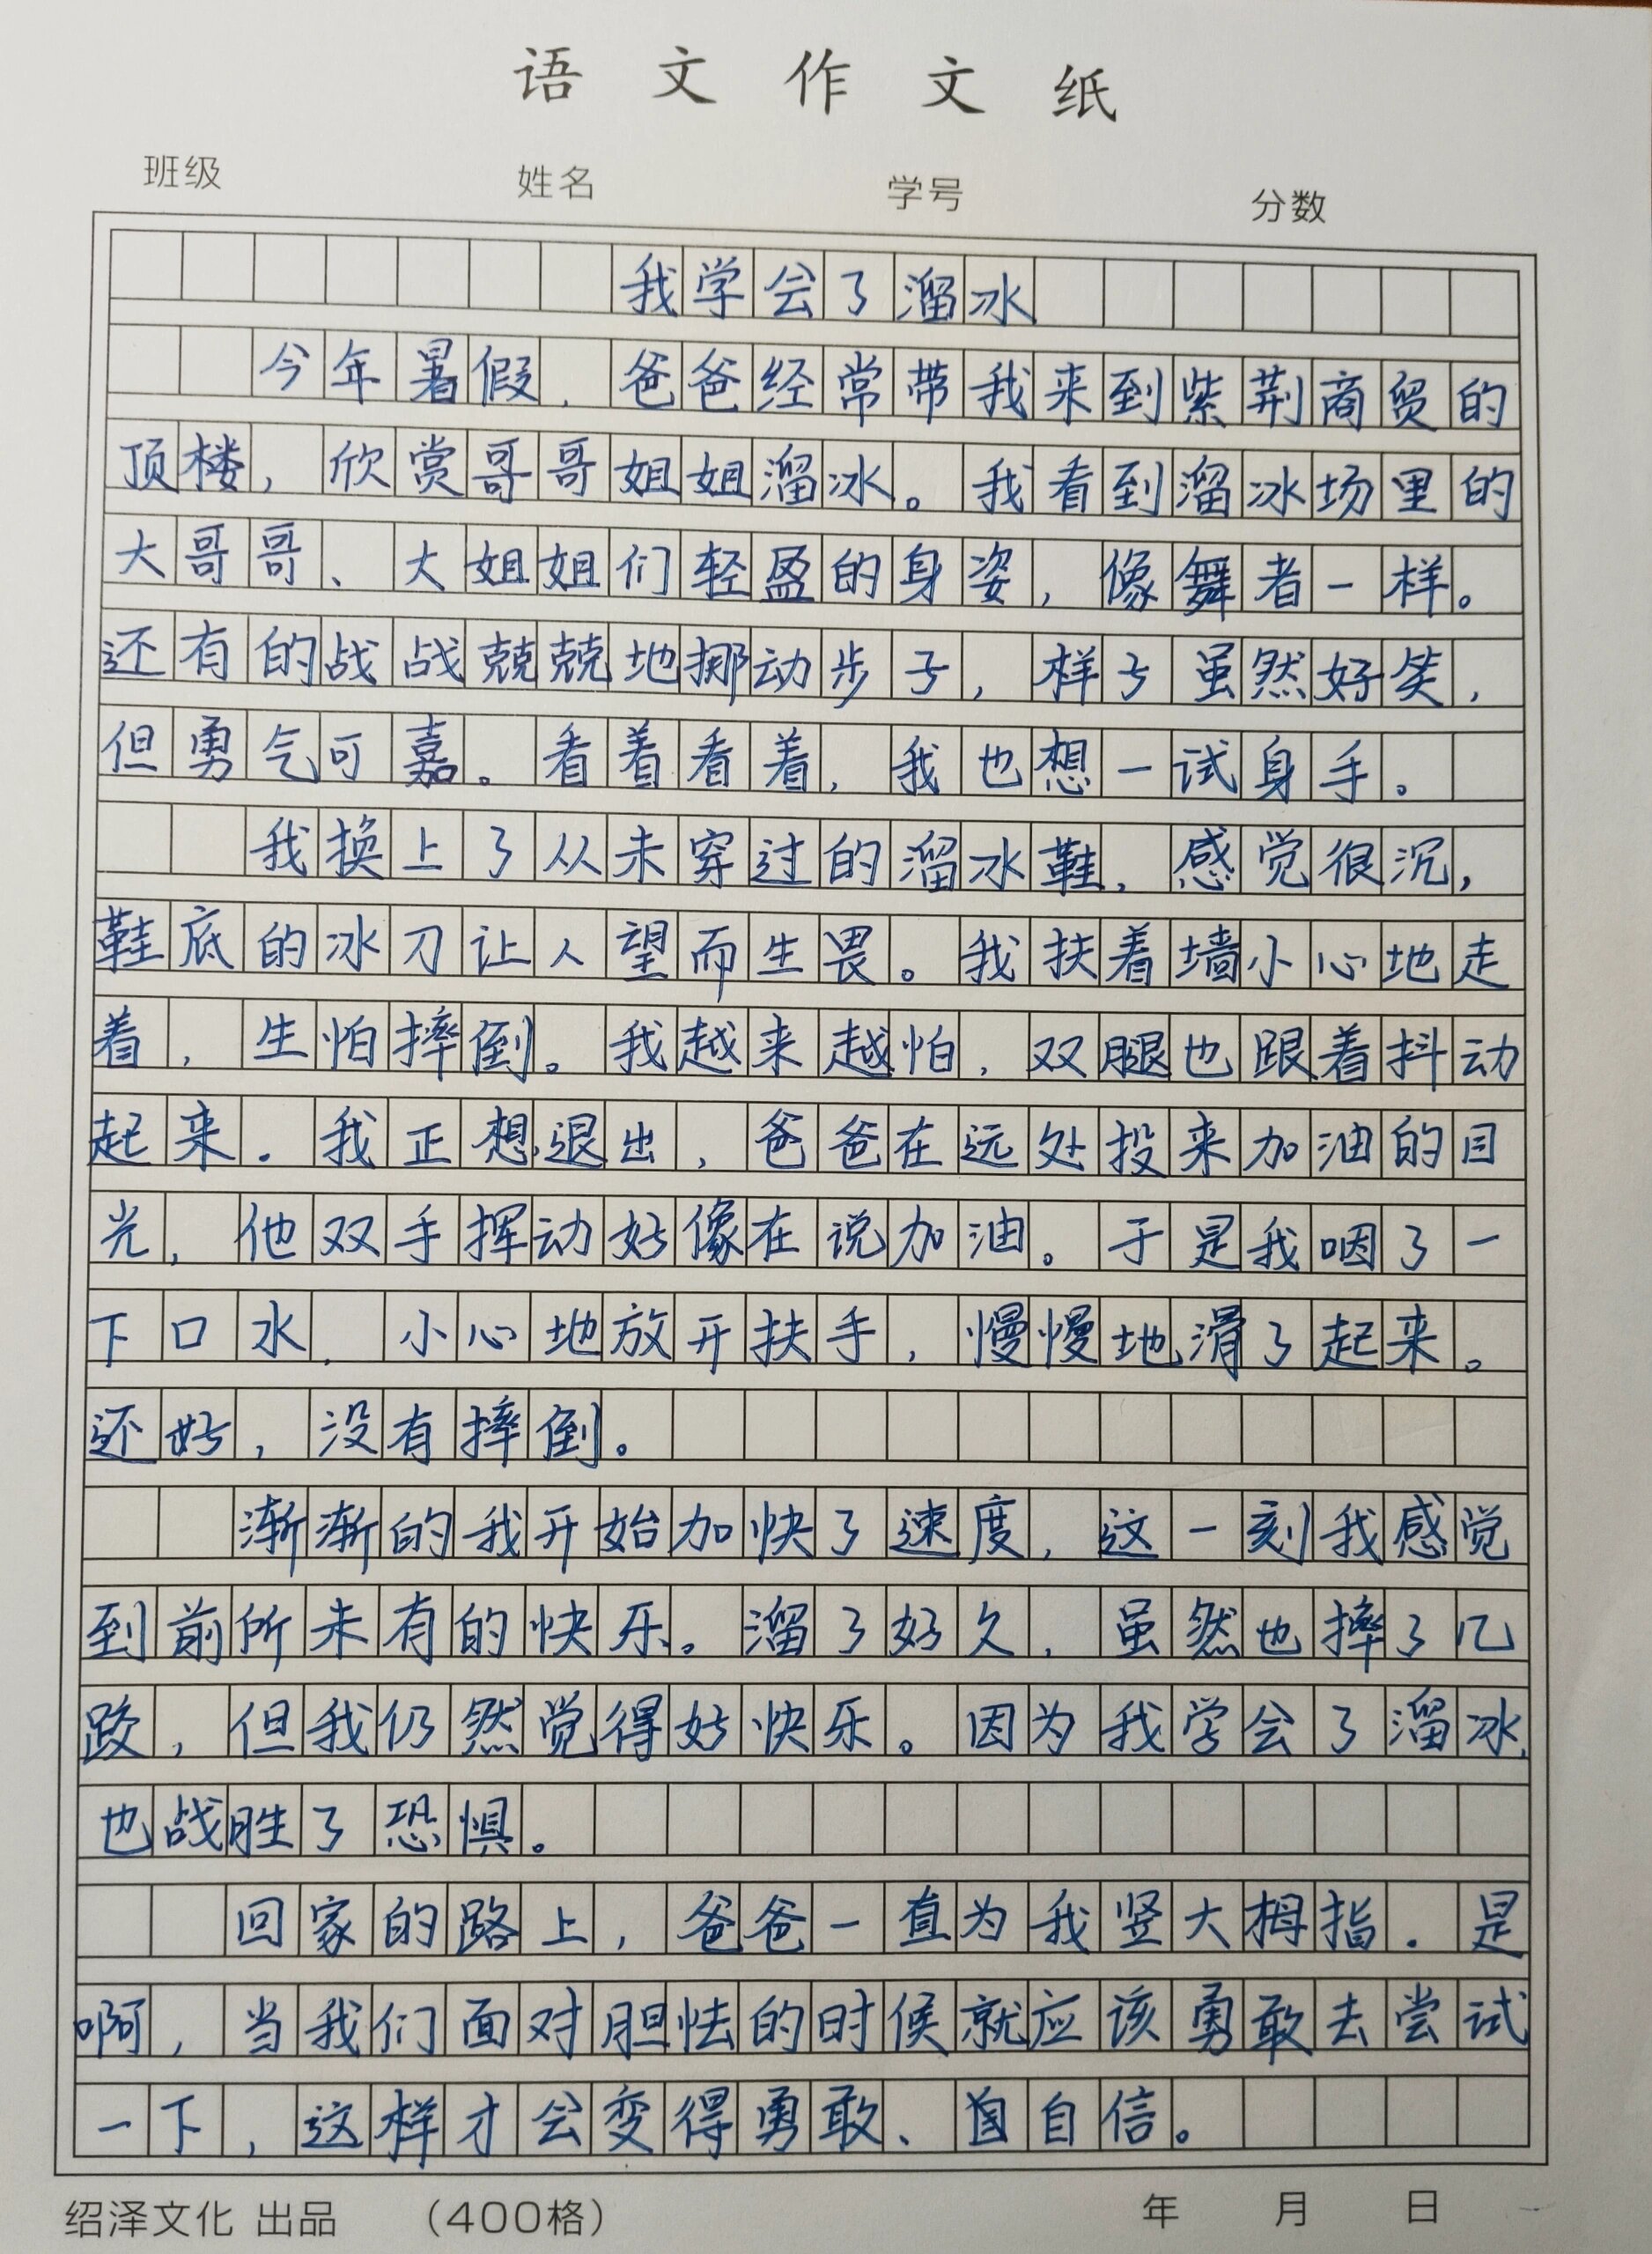 语文作文纸
班级 姓名 学号 分数
我学会了溜冰
今年暑假，爸爸经常带我来到紫荆商贸的
顶楼，欣赏哥哥姐姐溜冰。我看到溜冰场里的
大哥哥、大姐姐们轻盈的身姿，像舞者一样。
还有的战战兢兢地挪动步子，样子虽然好笑，
但勇气可嘉。看着看着，我也想一试身手。
我换上了从未穿过的溜冰鞋，感觉很沉，
鞋底的冰刀让人望而生畏。我扶着墙小心地走
着，生怕摔倒。我越来越怕，双腿也跟着抖动
起来．我正想退出，爸爸在远处投来加油的目
光，他双手挥动好像在说加油。于是我咽了一
下口水，小心地放开扶手，慢慢地滑了起来。
还好，没有摔倒。
渐渐的我开始加快了速度，这一刻我感觉
到前所未有的快乐。溜了好久，虽然也摔了几
跤，但我仍然觉得好快乐。因为我学会了溜冰，
也战胜了恐惧。
回家的路上，爸爸一直为我竖大拇指．是
啊，当我们面对胆怯的时候就应该勇敢去尝试
一下，这样才会变得勇敢、自信。
绍泽文化 出品 （400格） 年 月 日